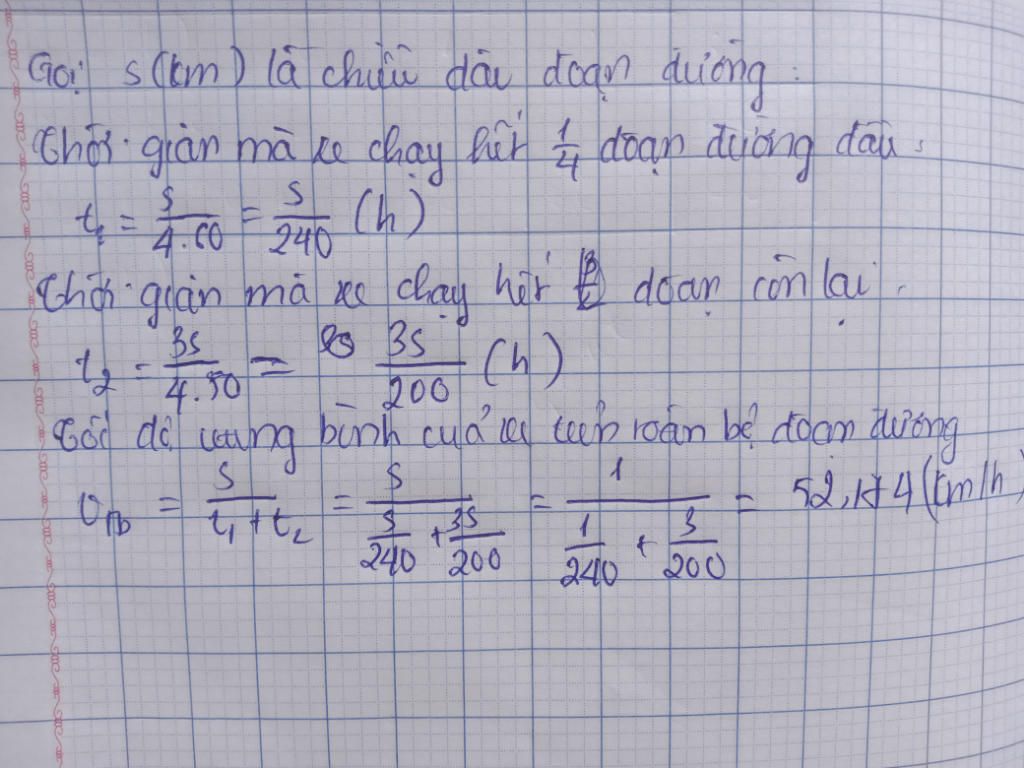 Gọi s(km) là chiều dài đoạn đường:
Thời gian mà xe chạy hết 1/4 đoạn đường đầu:
t₁ = s/4.60 = s/240 (h)
Thời gian mà xe chạy hết đoạn còn lại.
t₂ = 3s/4.50 = 3s/200 (h)
Tốc độ trung bình của xe trên toàn bộ đoạn đường
v_tb = s/(t₁ + t₂) = s/(s/240 + 3s/200) = 1/(1/240 + 3/200) = 52,174 (km/h)